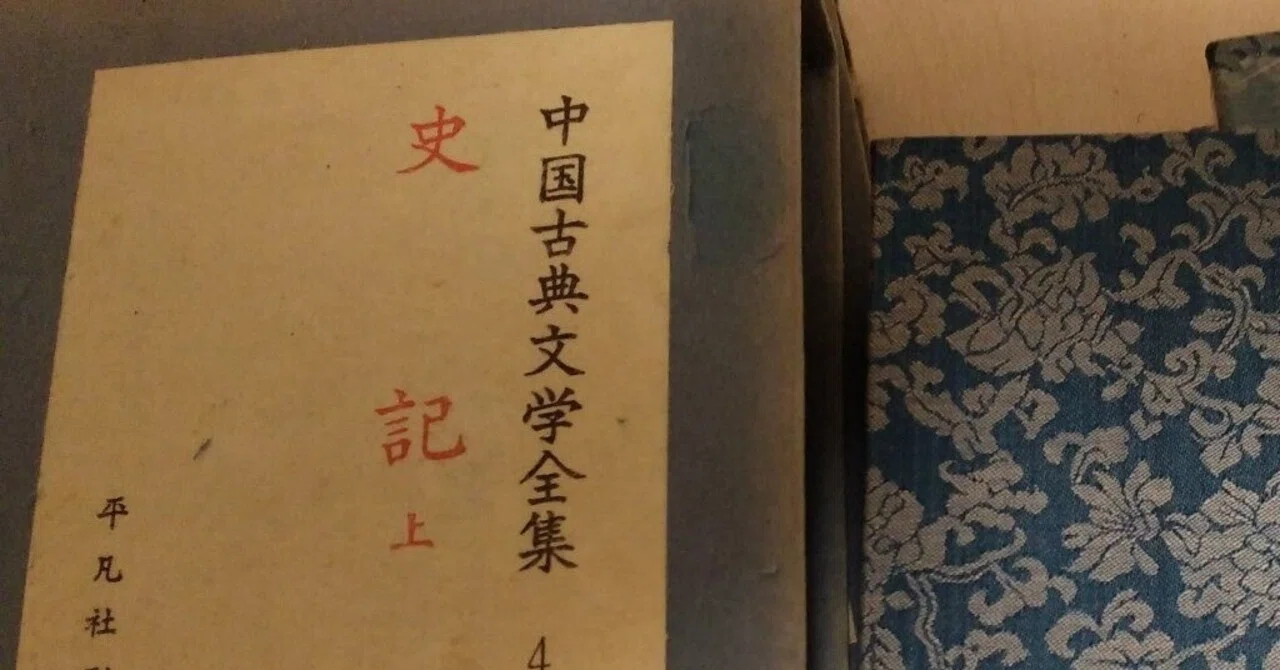 中国古典文学全集 4
史記 上
平凡社